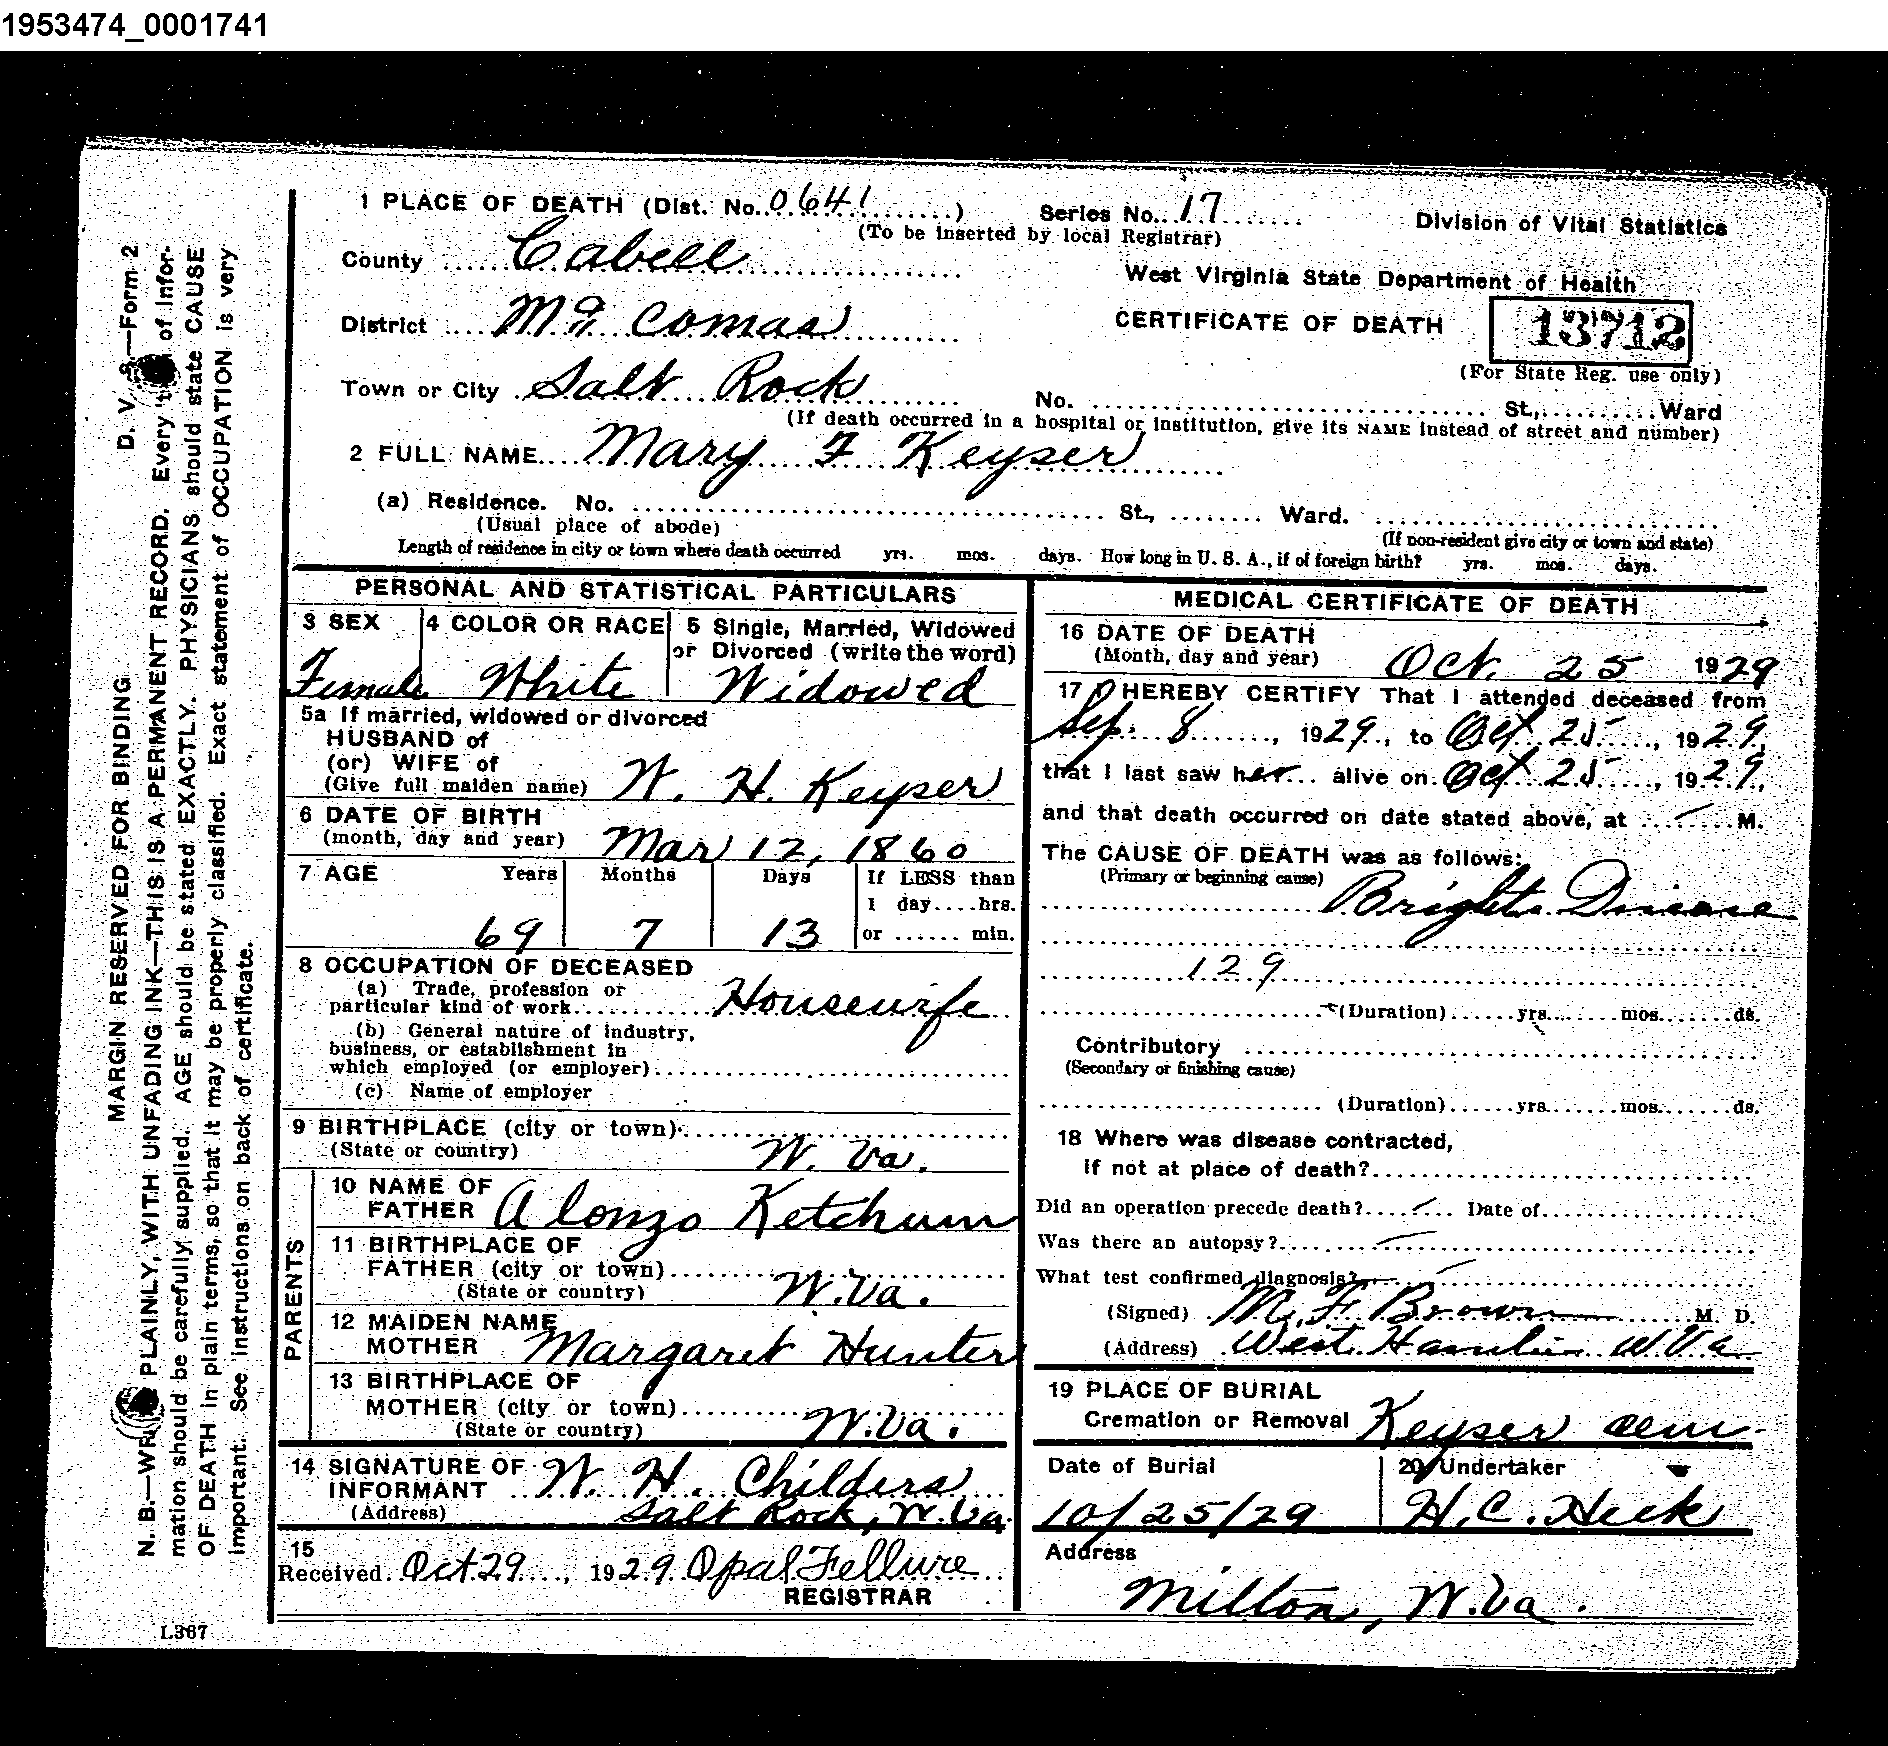 1953474_0001741
D. V. S.—Form 2
MARGIN RESERVED FOR BINDING
N. B.—WRITE PLAINLY, WITH UNFADING INK—THIS IS A PERMANENT RECORD. Every item of infor-
mation should be carefully supplied. AGE should be stated EXACTLY. PHYSICIANS should state CAUSE
OF DEATH in plain terms, so that it may be properly classified. Exact statement of OCCUPATION is very
important. See instructions on back of certificate.
1 PLACE OF DEATH (Dist. No. 0641) Series No. 17
(To be inserted by local Registrar)
Division of Vital Statistics
County Cabell
West Virginia State Department of Health
District Mc Comas
CERTIFICATE OF DEATH 13712
(For State Reg. use only)
Town or City Salt Rock No. St., Ward
(If death occurred in a hospital or institution, give its NAME instead of street and number)
2 FULL NAME Mary F Keyser
(a) Residence. No. St., Ward.
(Usual place of abode) (If non-resident give city or town and state)
Length of residence in city or town where death occurred yrs. mos. days. How long in U. S. A., if of foreign birth? yrs. mos. days.
PERSONAL AND STATISTICAL PARTICULARS
3 SEX 4 COLOR OR RACE 5 Single, Married, Widowed
or Divorced (write the word)
Female White Widowed
5a If married, widowed or divorced
HUSBAND of
(or) WIFE of
(Give full maiden name) W. H. Keyser
6 DATE OF BIRTH
(month, day and year) Mar 12, 1860
7 AGE Years Months Days If LESS than
1 day....hrs.
69 7 13 or ...... min.
8 OCCUPATION OF DECEASED
(a) Trade, profession or
particular kind of work Housewife
(b) General nature of industry,
business, or establishment in
which employed (or employer)
(c) Name of employer
9 BIRTHPLACE (city or town)
(State or country) W. Va.
PARENTS
10 NAME OF
FATHER Alonzo Ketchum
11 BIRTHPLACE OF
FATHER (city or town)
(State or country) W. Va.
12 MAIDEN NAME
MOTHER Margaret Hunter
13 BIRTHPLACE OF
MOTHER (city or town)
(State or country) W. Va.
14 SIGNATURE OF
INFORMANT W. H. Childers
(Address) Salt Rock, W. Va.
15
Received Oct 29, 1929 Opal Fellure
REGISTRAR
L367
MEDICAL CERTIFICATE OF DEATH
16 DATE OF DEATH
(Month, day and year) Oct. 25 1929
17 I HEREBY CERTIFY That I attended deceased from
Sep. 8, 1929, to Oct 25, 1929,
that I last saw her alive on Oct 25, 1929,
and that death occurred on date stated above, at M.
The CAUSE OF DEATH was as follows:
(Primary or beginning cause) Brights Disease
129
(Duration) yrs. mos. ds.
Contributory
(Secondary or finishing cause)
(Duration) yrs. mos. ds.
18 Where was disease contracted,
if not at place of death?
Did an operation precede death? Date of
Was there an autopsy?
What test confirmed diagnosis?
(Signed) M. F. Brown M. D.
(Address) West Hamlin W. Va
19 PLACE OF BURIAL
Cremation or Removal Keyser cem.
Date of Burial 20 Undertaker
10/25/29 H. C. Heck
Address
Milton, W. Va.